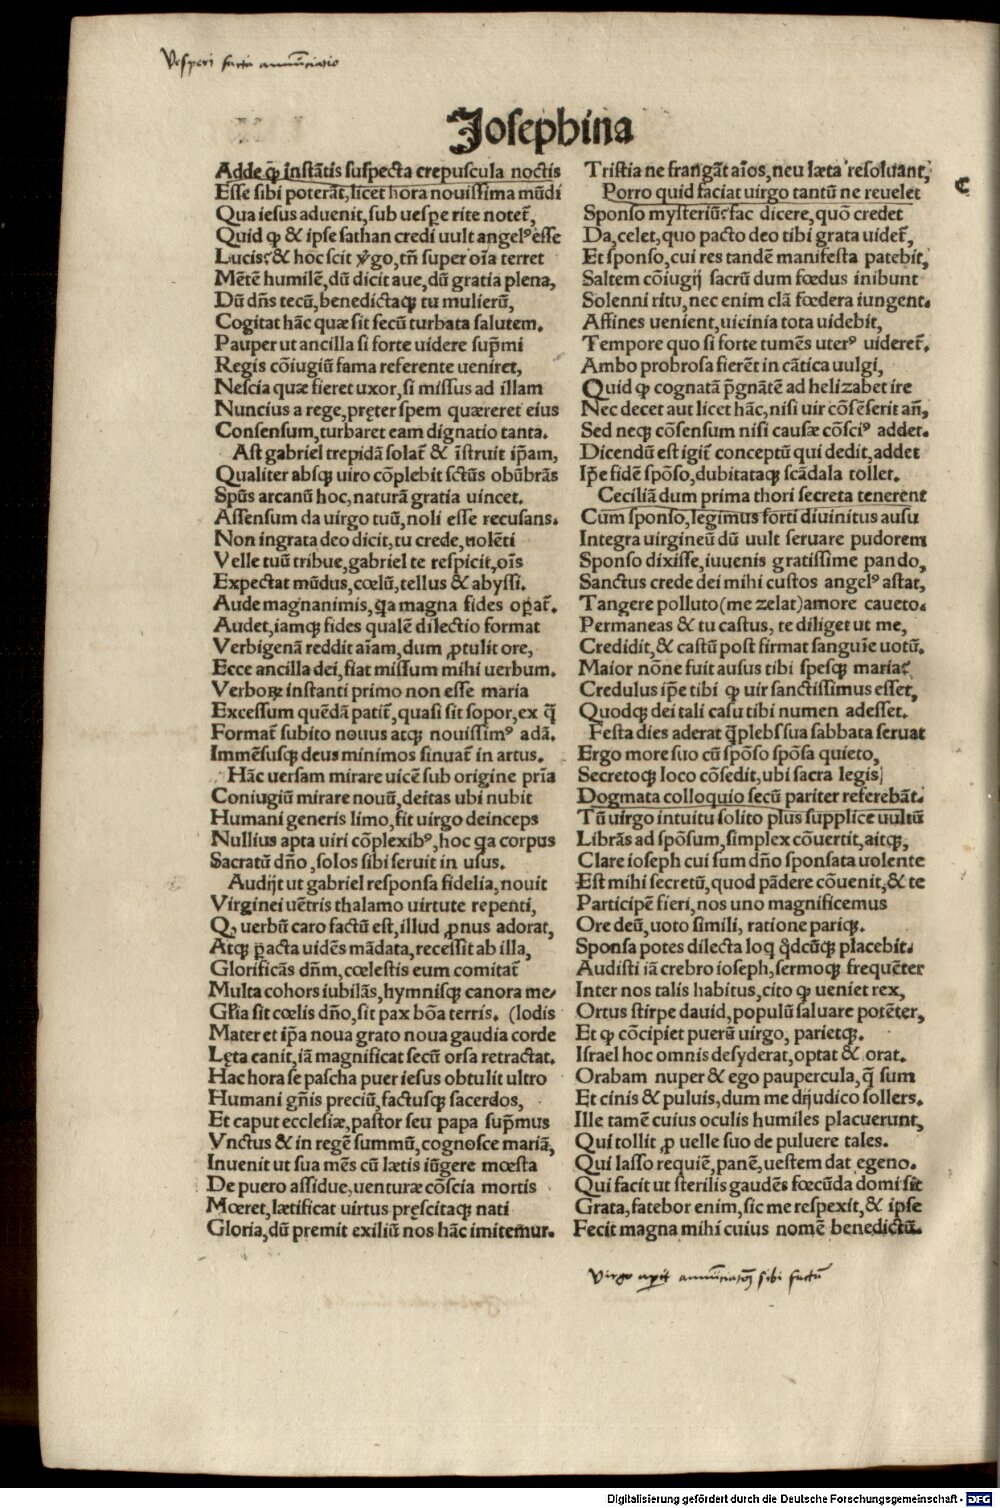 Vesperi facta annūciatio
Josephina
Adde qp instātis suspecta crepuscula noctis
Esse sibi poterāt, licet hora nouissima mūdi
Qua iesus aduenit, sub uespe rite notet̄,
Quid qp & ipse sathan credi uult angelꝰ esse
Lucis? & hoc scit v̄go, tn̄ super oīa terret
Mētē humilē, dū dicit aue, dū gratia plena,
Dū dn̄s tecū, benedictaqꝫ tu mulierū,
Cogitat hāc quæ sit secū turbata salutem.
Pauper ut ancilla si forte uidere sup̄mi
Regis cōiugiū fama referente ueniret,
Nescia quæ fieret uxor, si missus ad illam
Nuncius a rege, pręter spem quæreret eius
Consensum, turbaret eam dignatio tanta.
Ast gabriel trepidā solat̄ & īstruit ip̄am,
Qualiter absqꝫ uiro cōplebit sctūs obūbrās
Spūs arcanū hoc, naturā gratia uincet.
Assensum da uirgo tuū, noli esse recusans.
Non ingrata deo dicit, tu crede, nolēti
Velle tuū tribue, gabriel te respicit, oīs
Expectat mūdus, cœlū, tellus & abyssi.
Aude magnanimis, qa magna fides opat̄.
Audet, iamqꝫ fides qualē dilectio format
Verbigenā reddit aīam, dum ꝓtulit ore,
Ecce ancilla dei, fiat missum mihi uerbum.
Verboꝝ instanti primo non esse maria
Excessum quēdā patit̄, quasi sit sopor, ex q̄
Format̄ subito nouus atqꝫ nouissimꝰ adā.
Immēsusqꝫ deus minimos sinuat̄ in artus.
Hāc uersam mirare uicē sub origine prīa
Coniugiū mirare nouū, deitas ubi nubit
Humani generis limo, fit uirgo deinceps
Nullius apta uiri cōplexibꝰ, hoc qa corpus
Sacratū dn̄o, solos sibi seruit in usus.
Audijt ut gabriel responsa fidelia, nouit
Virginei uētris thalamo uirtute repenti,
Qꝫ uerbū caro factū est, illud ꝓnus adorat,
Atqꝫ ꝑacta uidēs mādata, recessit ab illa,
Glorificās dn̄m, cœlestis eum comitat̄
Multa cohors iubilās, hymnisqꝫ canora me-
Gl̄ia sit cœlis dn̄o, sit pax bōa terris. (lodis
Mater et ip̄a noua grato noua gaudia corde
Lęta canit, iā magnificat secū orsa retractat.
Hac hora se pascha puer iesus obtulit ultro
Humani gn̄is preciū, factusqꝫ sacerdos,
Et caput ecclesiæ, pastor seu papa sup̄mus
Vnctus & in regē summū, cognosce mariā,
Inuenit ut sua mēs cū lætis iūgere mœsta
De puero assidue, uenturæ cōscia mortis
Mœret, lætificat uirtus pręscitaqꝫ nati
Gloria, dū premit exiliū nos hāc imitemur.
Tristia ne frangāt aīos, neu læta resoluant,
Porro quid faciat uirgo tantū ne reuelet
Sponso mysteriū? fac dicere, quō credet
Da, celet, quo pacto deo tibi grata uidet̄,
Et sponso, cui res tandē manifesta patebit,
Saltem cōiugij sacrū dum fœdus inibunt
Solenni ritu, nec enim clā fœdera iungent.
Affines uenient, uicinia tota uidebit,
Tempore quo si forte tumēs uterꝰ uideret̄.
Ambo probrosa fierēt in cātica uulgi,
Quid qp cognatā p̄gnātē ad helizabet ire
Nec decet aut licet hāc, nisi uir cōsēserit an̄,
Sed neqꝫ cōsensum nisi causæ cōsciꝰ addet.
Dicendū est igit̄ conceptū qui dedit, addet
Ip̄e fidē spōso, dubitataqꝫ scādala tollet.
Ceciliā dum prima thori secreta tenerent
Cum sponso, legimus forti diuinitus ausu
Integra uirgineū dū uult seruare pudorem
Sponso dixisse, iuuenis gratissime pando,
Sanctus crede dei mihi custos angelꝰ astat,
Tangere polluto (me zelat) amore caueto.
Permaneas & tu castus, te diliget ut me,
Credidit, & castū post firmat sanguīe uotū.
Maior nōne fuit ausus tibi spesqꝫ maria?
Credulus ip̄e tibi qp uir sanctissimus esset,
Quodqꝫ dei tali casu tibi numen adesset.
Festa dies aderat q̄ plebs sua sabbata seruat
Ergo more suo cū spōso spōsa quieto,
Secretoqꝫ loco cōsedit, ubi sacra legis
Dogmata colloquio secū pariter referebāt.
Tū uirgo intuitu solito plus supplice uultū
Librās ad spōsum, simplex cōuertit, aitqꝫ,
Clare ioseph cui sum dn̄o sponsata uolente
Est mihi secretū, quod pādere cōuenit, & te
Participē fieri, nos uno magnificemus
Ore deū, uoto simili, ratione pariqꝫ.
Sponsa potes dilecta loq qdcūqꝫ placebit.
Audisti iā crebro ioseph, sermoqꝫ frequēter
Inter nos talis habitus, cito qp ueniet rex,
Ortus stirpe dauid, populū saluare potēter,
Et qp cōcipiet puerū uirgo, parietqꝫ.
Israel hoc omnis desyderat, optat & orat.
Orabam nuper & ego paupercula, q̄ sum
Et cinis & puluis, dum me dijudico sollers.
Ille tamē cuius oculis humiles placuerunt,
Qui tollit ꝓ uelle suo de puluere tales.
Qui lasso requiē, panē, uestem dat egeno.
Qui facit ut sterilis gaudēs fœcūda domi sit
Grata, fatebor enim, sic me respexit, & ipse
Fecit magna mihi cuius nomē benedictū.
Virgo aperit annūciatōꝫ sibi factū
Digitalisierung gefördert durch die Deutsche Forschungsgemeinschaft - DFG